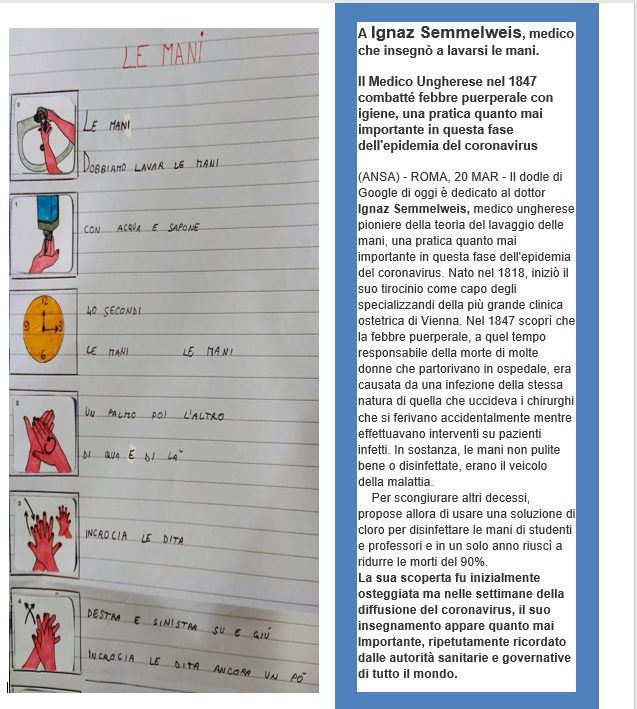 LE MANI
0
LE MANI
DOBBIAMO LAVAR LE MANI
1
CON ACQUA E SAPONE
12
9 3
6
40 SECONDI
LE MANI LE MANI
2
UN PALMO POI L'ALTRO
DI QUA E DI LA'
3
INCROCIA LE DITA
4
DESTRA E SINISTRA SU E GIÚ
INCROCIA LE DITA ANCORA UN PO'
A Ignaz Semmelweis, medico
che insegnò a lavarsi le mani.
Il Medico Ungherese nel 1847
combatté febbre puerperale con
igiene, una pratica quanto mai
importante in questa fase
dell'epidemia del coronavirus
(ANSA) - ROMA, 20 MAR - Il dodle di
Google di oggi è dedicato al dottor
Ignaz Semmelweis, medico ungherese
pioniere della teoria del lavaggio delle
mani, una pratica quanto mai
importante in questa fase dell'epidemia
del coronavirus. Nato nel 1818, iniziò il
suo tirocinio come capo degli
specializzandi della più grande clinica
ostetrica di Vienna. Nel 1847 scoprì che
la febbre puerperale, a quel tempo
responsabile della morte di molte
donne che partorivano in ospedale, era
causata da una infezione della stessa
natura di quella che uccideva i chirurghi
che si ferivano accidentalmente mentre
effettuavano interventi su pazienti
infetti. In sostanza, le mani non pulite
bene o disinfettate, erano il veicolo
della malattia.
Per scongiurare altri decessi,
propose allora di usare una soluzione di
cloro per disinfettare le mani di studenti
e professori e in un solo anno riuscì a
ridurre le morti del 90%.
La sua scoperta fu inizialmente
osteggiata ma nelle settimane della
diffusione del coronavirus, il suo
insegnamento appare quanto mai
Importante, ripetutamente ricordato
dalle autorità sanitarie e governative
di tutto il mondo.